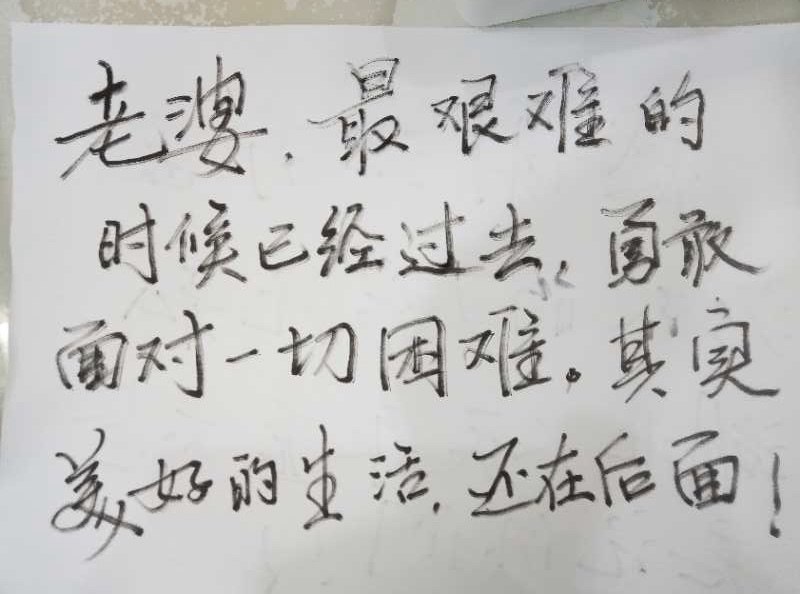 老婆，最艰难的
时候已经过去，勇敢
面对一切困难。其实
美好的生活，还在后面！